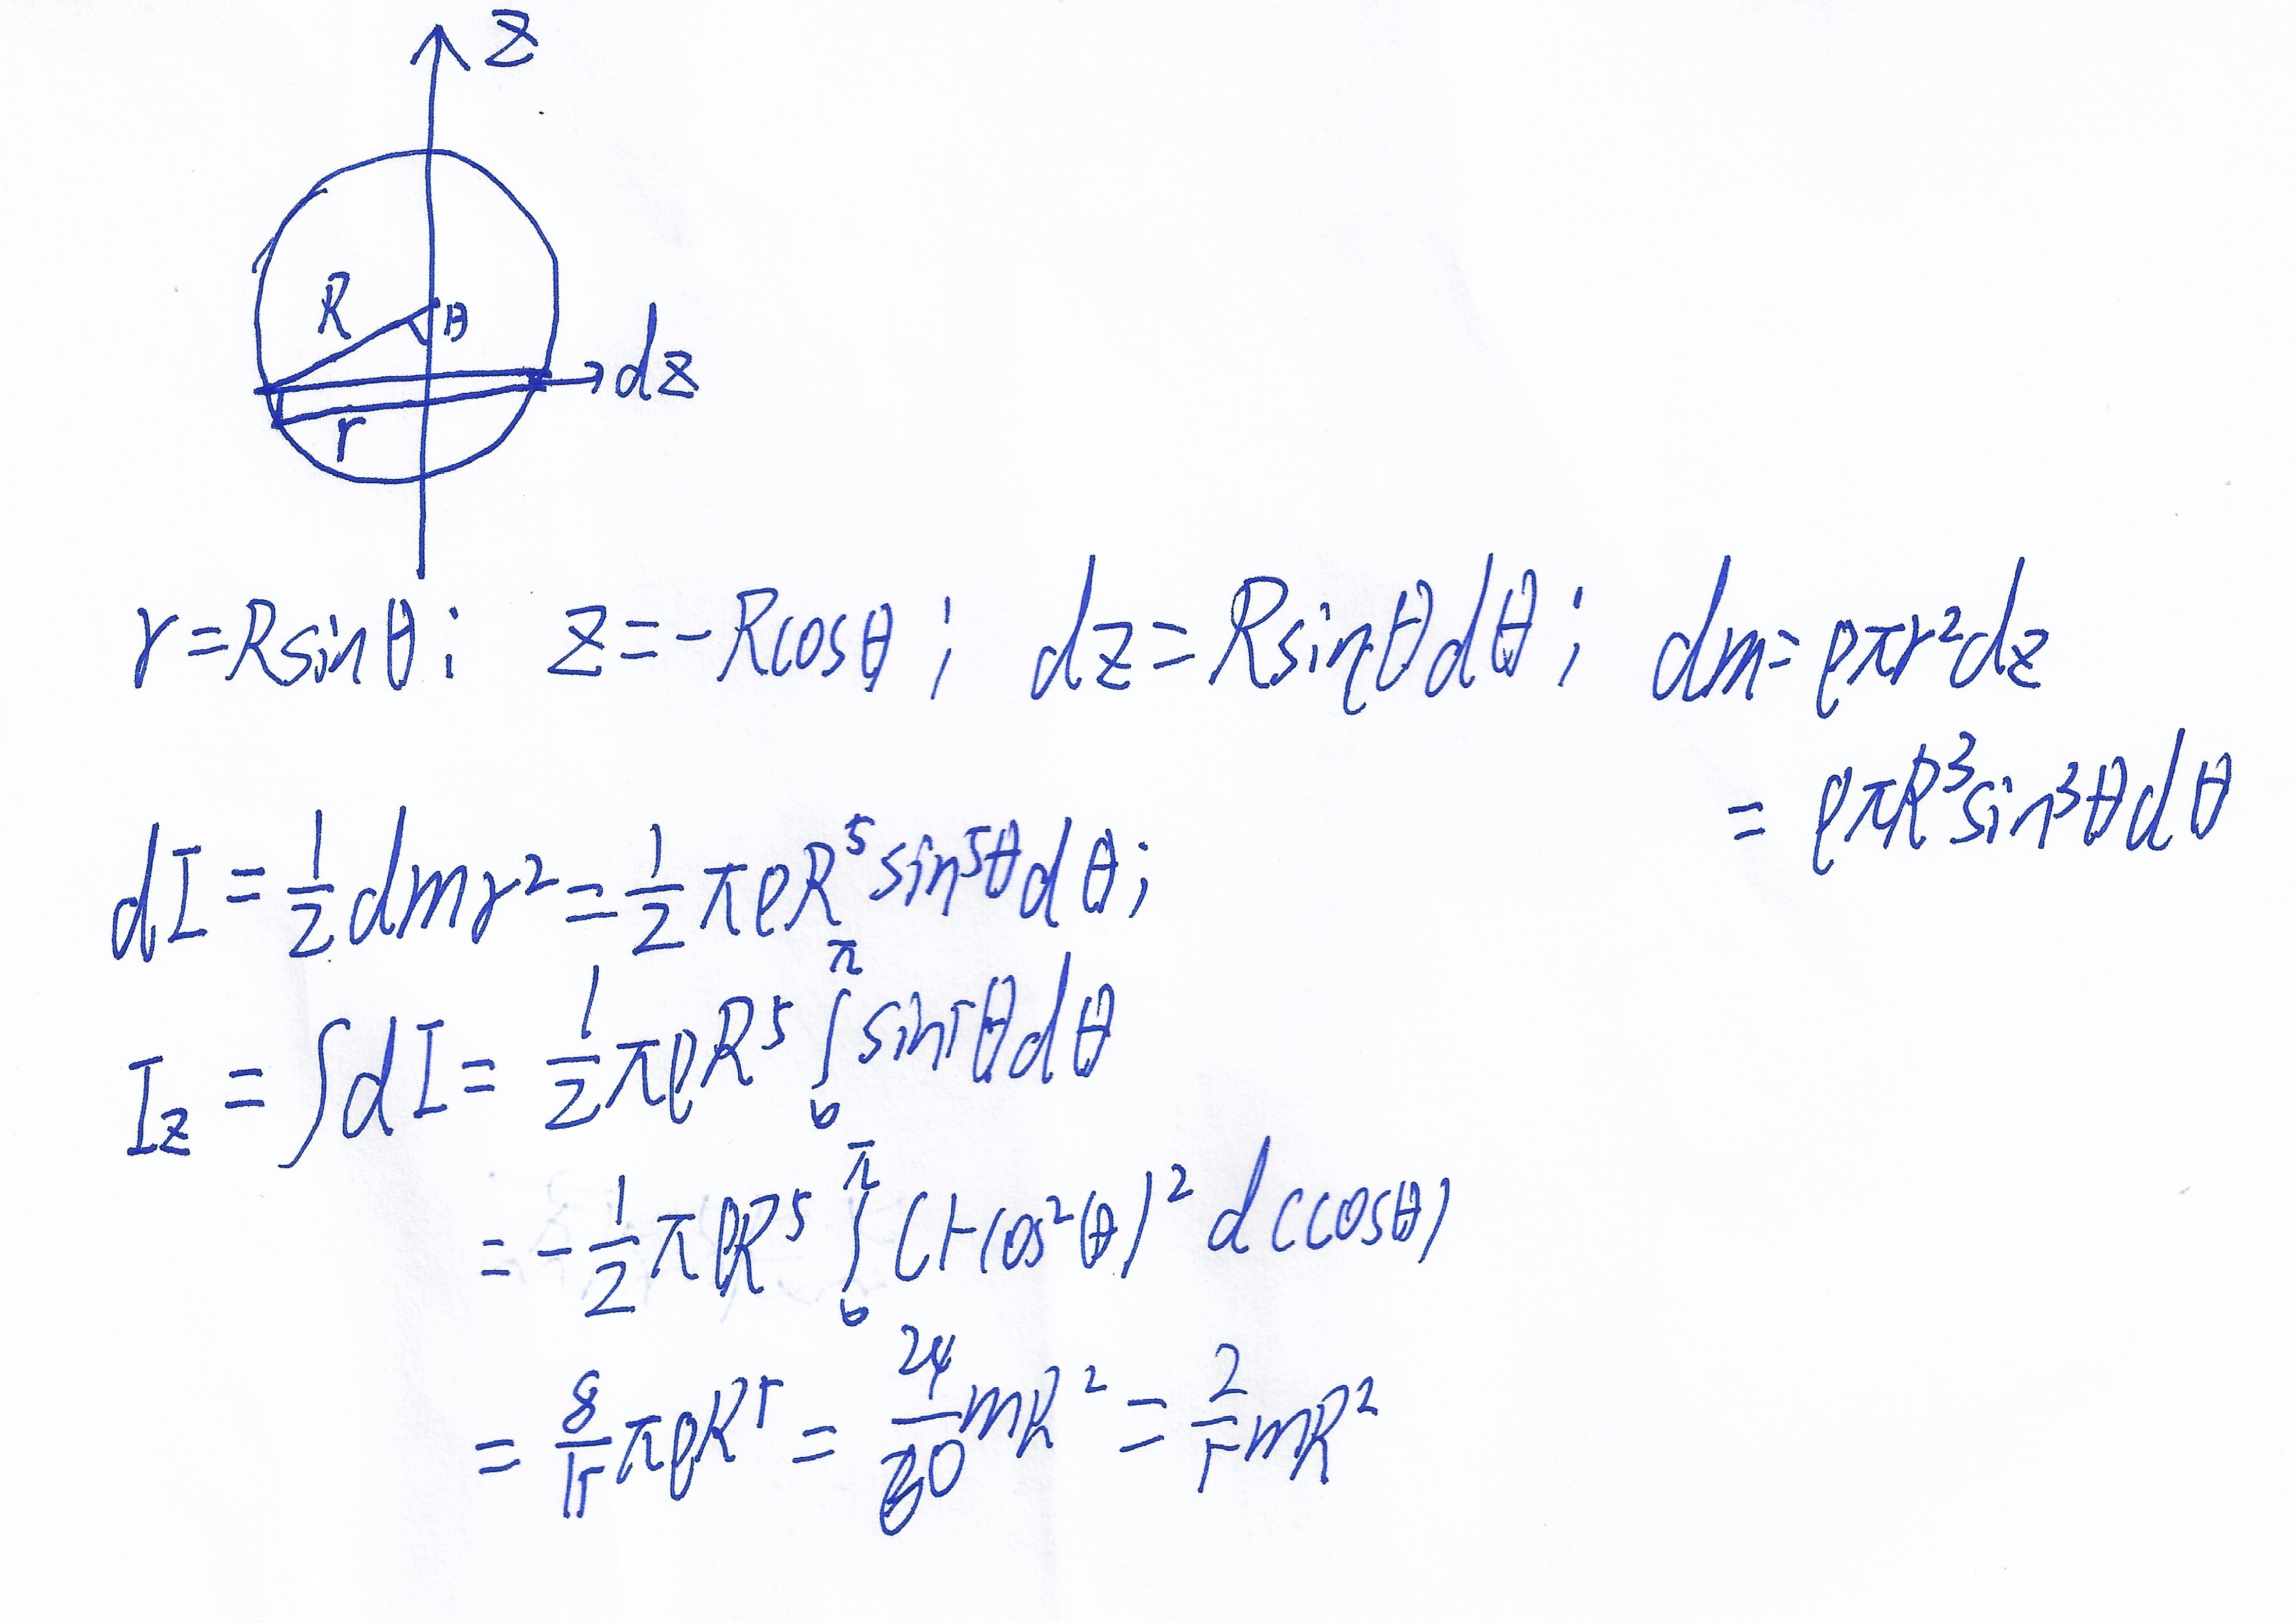 z
R θ
dz
r
r=Rsinθ; z=-Rcosθ; dz=Rsinθdθ; dm=ρπr²dz
=ρπR³sin³θdθ
dI=1/2dmr²=1/2πρR⁵sin⁵θdθ;
I_z=∫dI=1/2πρR⁵∫₀^π sin⁵θdθ
=-1/2πρR⁵∫₀^π(1-cos²θ)²d(cosθ)
=8/15πρR⁵=24/60mR²=2/5mR²